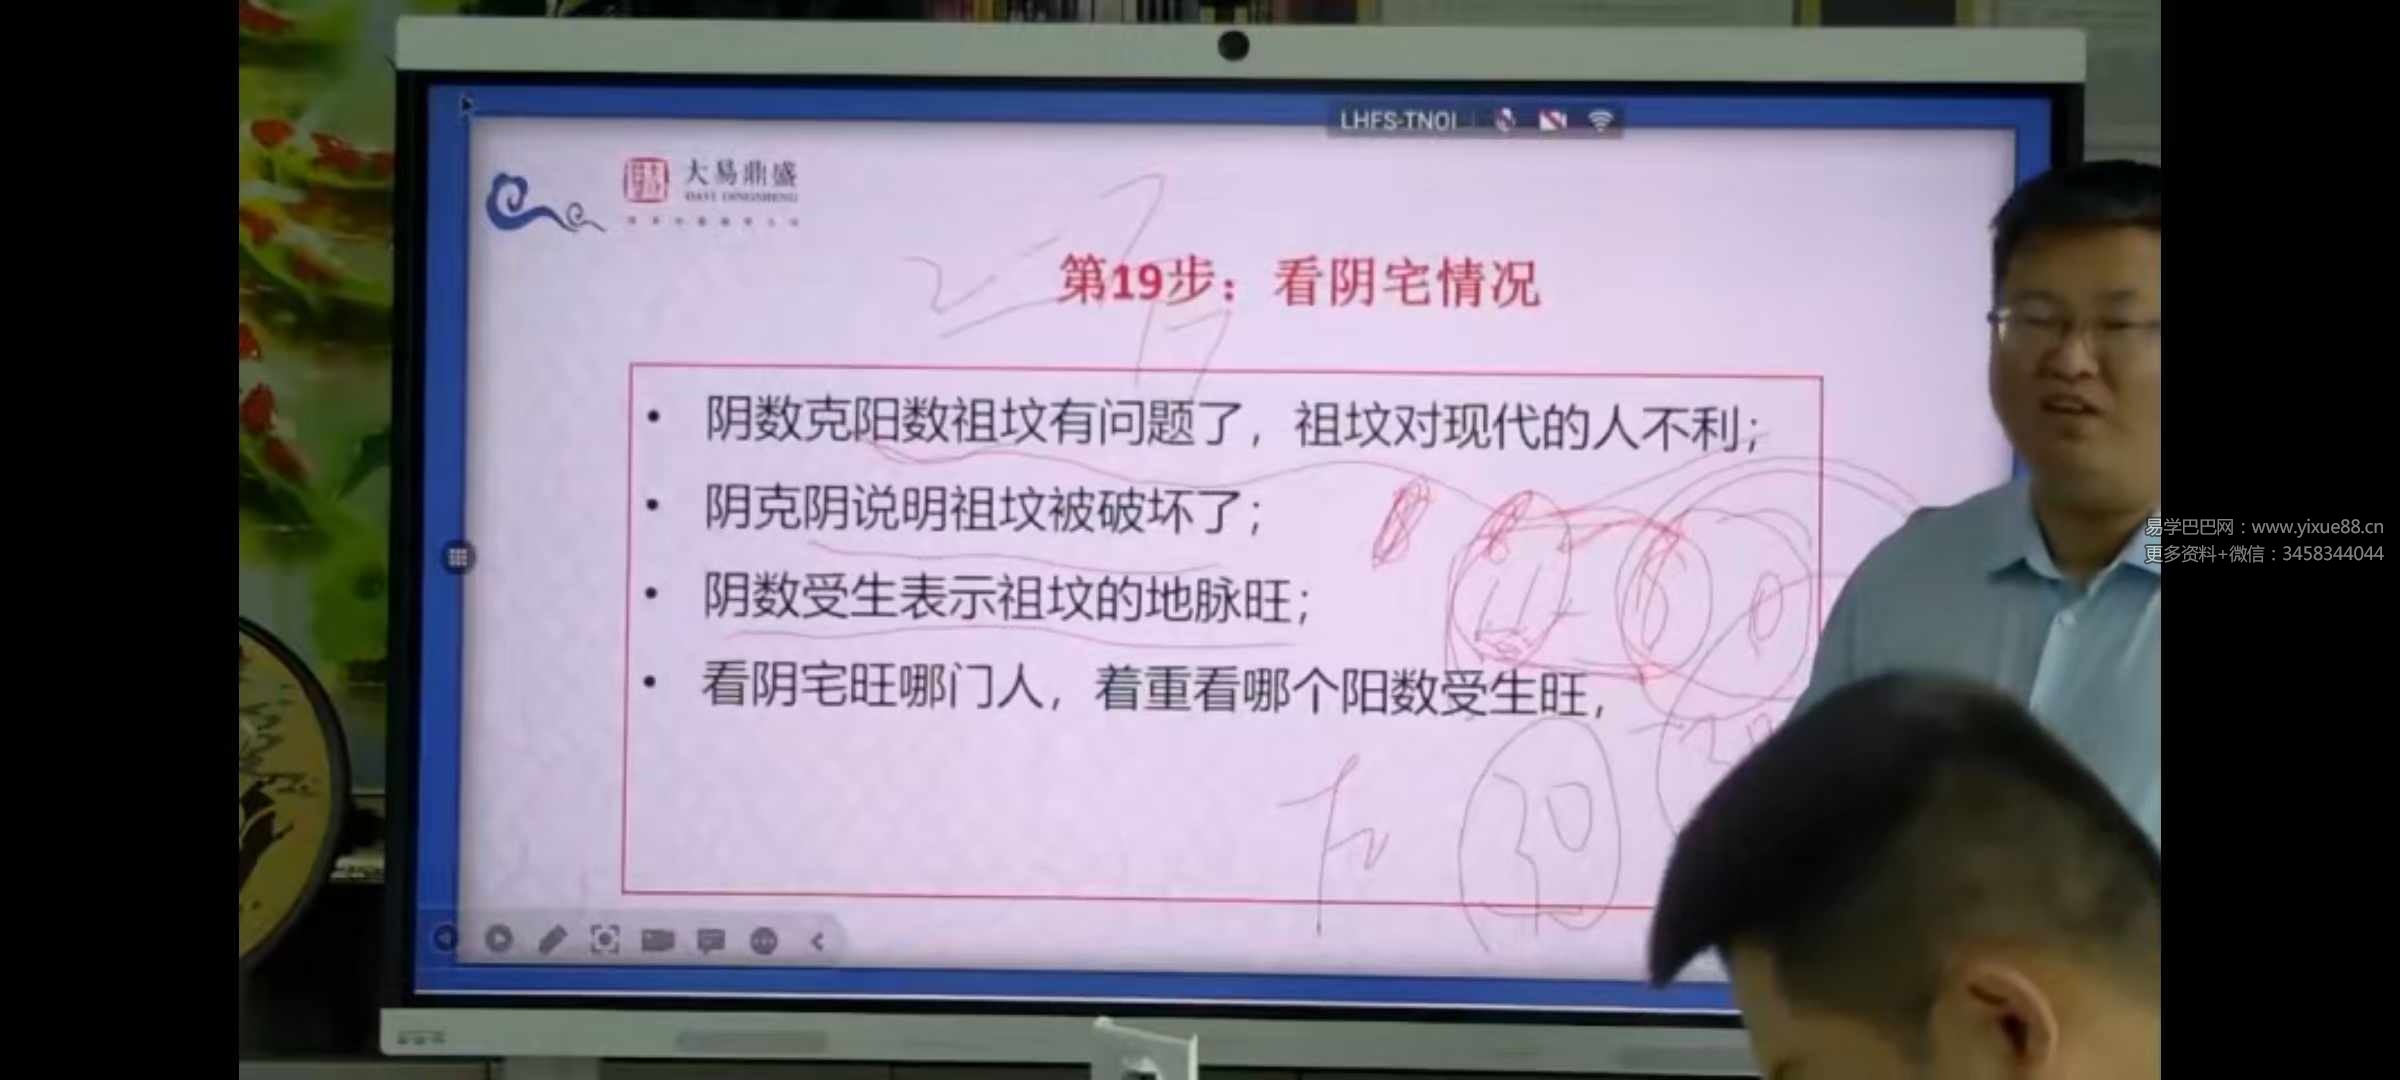 LHFS-TNOI
大易鼎盛
DAYI DINGSHENG
第19步：看阴宅情况
• 阴数克阳数祖坟有问题了，祖坟对现代的人不利；
• 阴克阴说明祖坟被破坏了；
• 阴数受生表示祖坟的地脉旺；
• 看阴宅旺哪门人，着重看哪个阳数受生旺，
易学巴巴网：www.yixue88.cn
更多资料+微信：3458344044